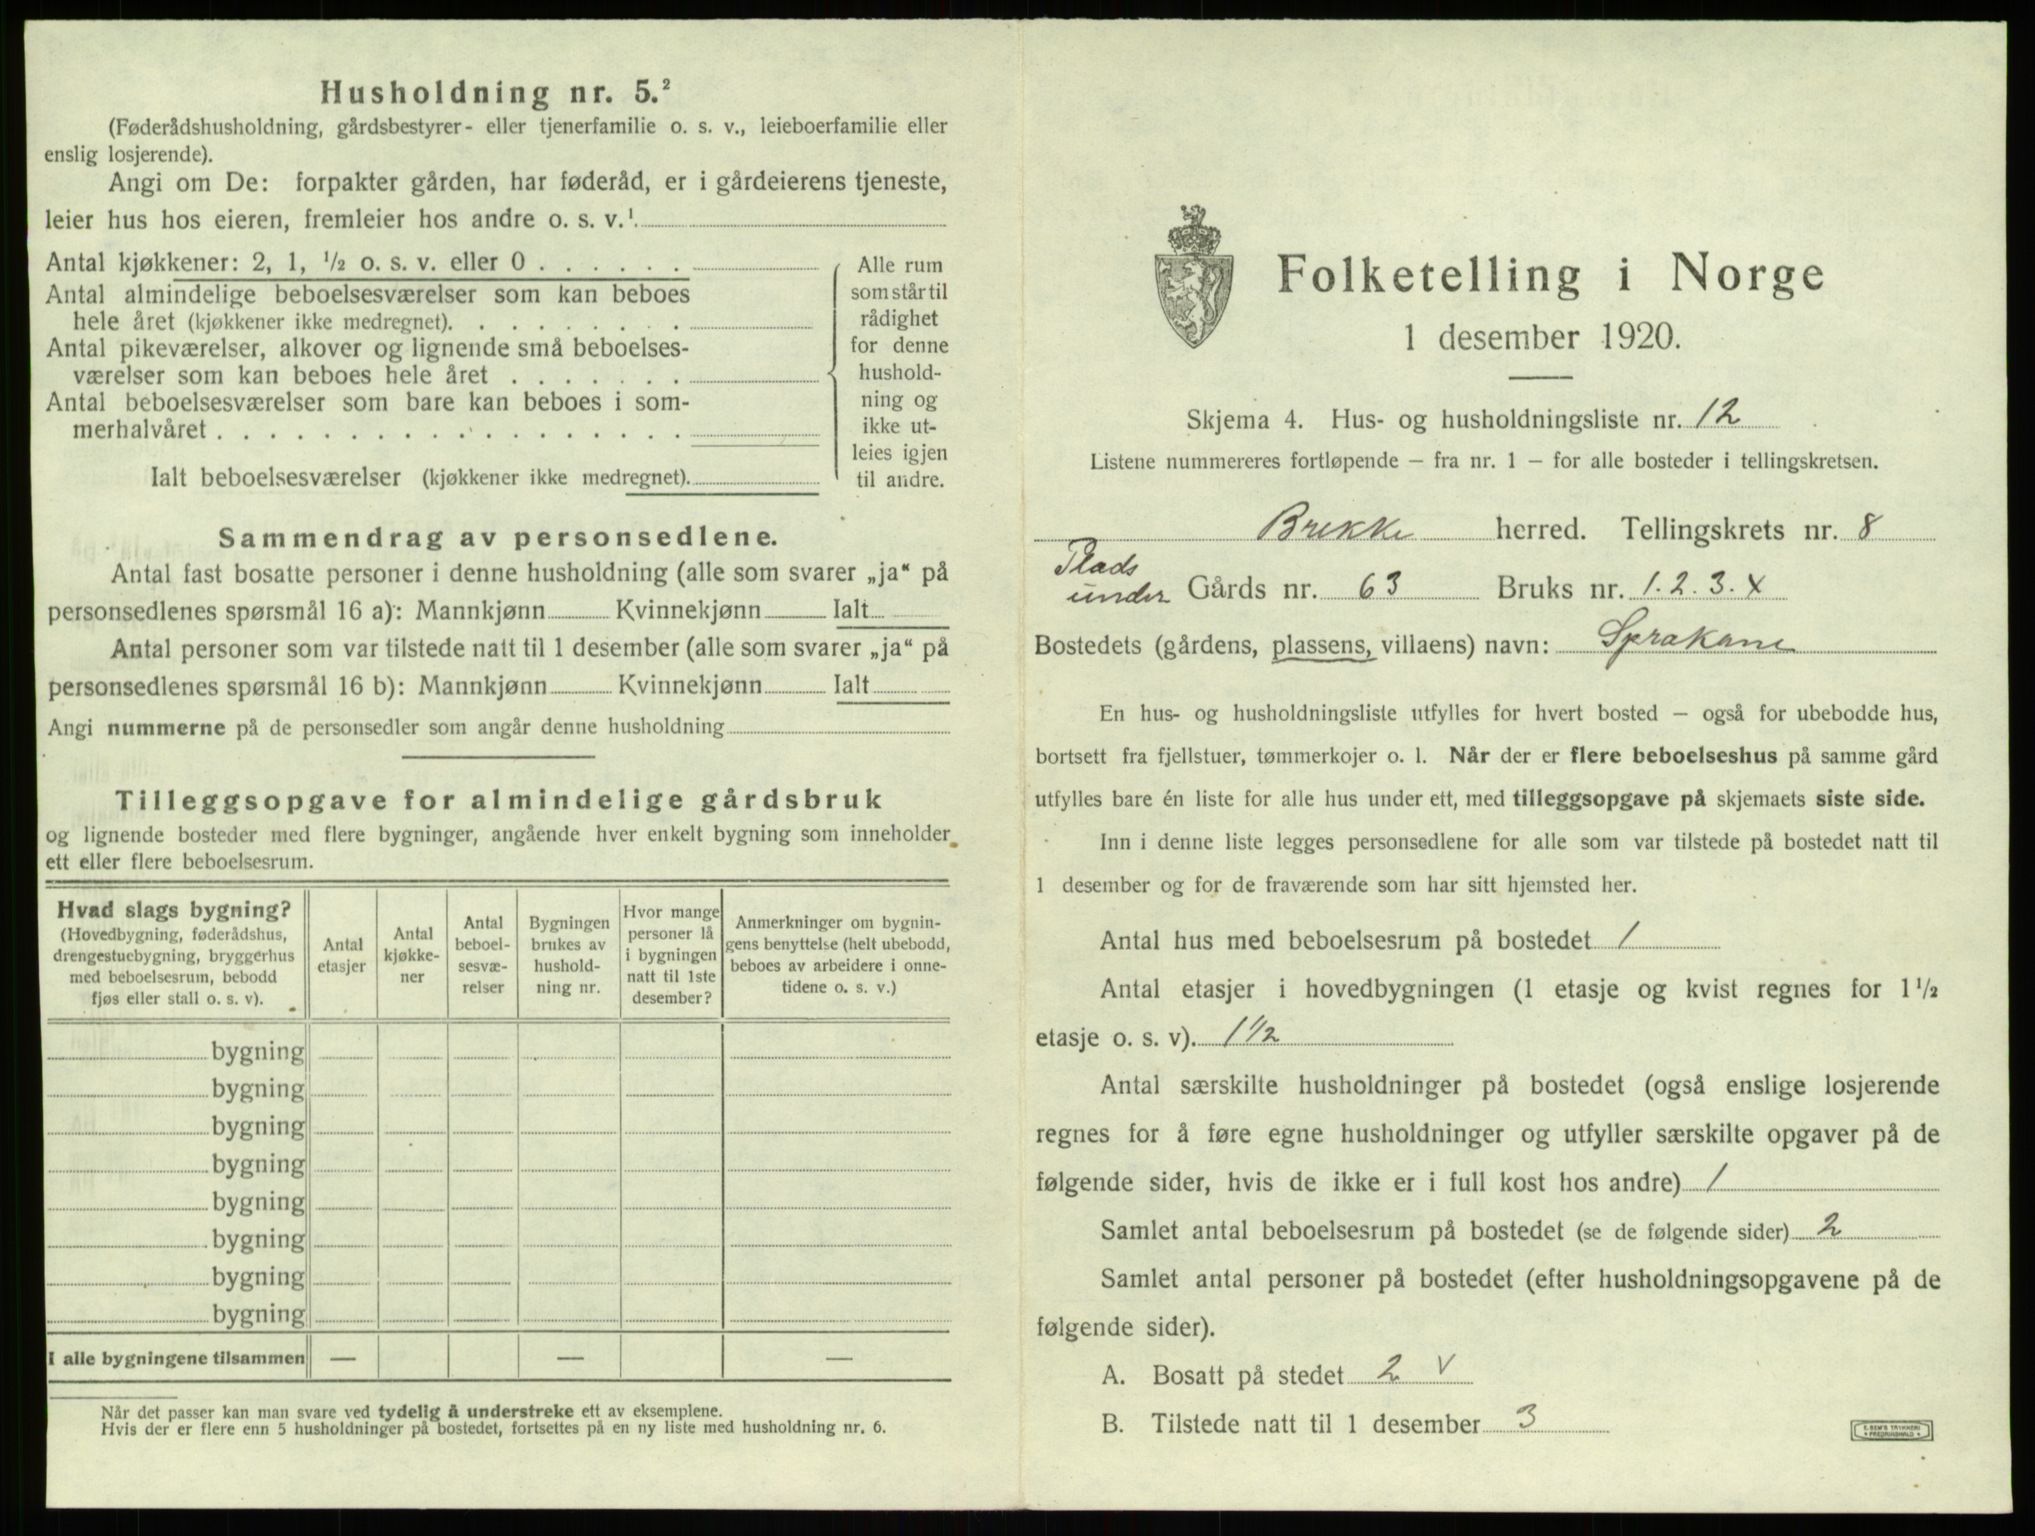 Husholdning nr. 5.²
(Føderådshusholdning, gårdsbestyrer- eller tjenerfamilie o. s. v., leieboerfamilie eller
enslig losjerende).
Angi om De: forpakter gården, har føderåd, er i gårdeierens tjeneste,
leier hus hos eieren, fremleier hos andre o. s. v.¹
Antal kjøkkener: 2, 1, ½ o. s. v. eller 0 . . . . . .
Antal almindelige beboelsesværelser som kan beboes
hele året (kjøkkener ikke medregnet). . . . . . . . .
Antal pikeværelser, alkover og lignende små beboelses-
værelser som kan beboes hele året . . . . . . .
Antal beboelsesværelser som bare kan beboes i som-
merhalvåret . . . . . . . . . . . . . . . . . .
Ialt beboelsesværelser (kjøkkener ikke medregnet).
Alle rum
som står til
rådighet
for denne
hushold-
ning og
ikke ut-
leies igjen
til andre.
Sammendrag av personsedlene.
Antal fast bosatte personer i denne husholdning (alle som svarer „ja“ på
personsedlenes spørsmål 16 a): Mannkjønn Kvinnekjønn Ialt
Antal personer som var tilstede natt til 1 desember (alle som svarer „ja“ på
personsedlenes spørsmål 16 b): Mannkjønn Kvinnekjønn Ialt
Angi nummerne på de personsedler som angår denne husholdning
Tilleggsopgave for almindelige gårdsbruk
og lignende bosteder med flere bygninger, angående hver enkelt bygning som inneholder
ett eller flere beboelsesrum.
Hvad slags bygning?
(Hovedbygning, føderådshus,
drengestuebygning, bryggerhus
med beboelsesrum, bebodd
fjøs eller stall o. s. v).
Antal
etasjer
Antal
kjøkke-
ner
Antal
beboel-
sesvæ-
relser
Bygningen
brukes av
hushold-
ning nr.
Hvor mange
personer lå
i bygningen
natt til 1ste
desember?
Anmerkninger om bygnin-
gens benyttelse (helt ubebodd,
beboes av arbeidere i onne-
tidene o. s. v.)
bygning
bygning
bygning
bygning
bygning
bygning
bygning
bygning
I alle bygningene tilsammen — — —
Når det passer kan man svare ved tydelig å understreke ett av eksemplene.
Hvis der er flere enn 5 husholdninger på bostedet, fortsettes på en ny liste med husholdning nr. 6.
Folketelling i Norge
1 desember 1920.
Skjema 4. Hus- og husholdningsliste nr. 12
Listene nummereres fortløpende – fra nr. 1 – for alle bosteder i tellingskretsen.
Brekke herred. Tellingskrets nr. 8
Plads
under Gårds nr. 63 Bruks nr. 1. 2. 3. x
Bostedets (gårdens, plassens, villaens) navn: Sprakane
En hus- og husholdningsliste utfylles for hvert bosted – også for ubebodde hus,
bortsett fra fjellstuer, tømmerkojer o. l. Når der er flere beboelseshus på samme gård
utfylles bare én liste for alle hus under ett, med tilleggsopgave på skjemaets siste side.
Inn i denne liste legges personsedlene for alle som var tilstede på bostedet natt til
1 desember og for de fraværende som har sitt hjemsted her.
Antal hus med beboelsesrum på bostedet 1
Antal etasjer i hovedbygningen (1 etasje og kvist regnes for 1½
etasje o. s. v). 1½
Antal særskilte husholdninger på bostedet (også enslige losjerende
regnes for å føre egne husholdninger og utfyller særskilte opgaver på de
følgende sider, hvis de ikke er i full kost hos andre) 1
Samlet antal beboelsesrum på bostedet (se de følgende sider) 2
Samlet antal personer på bostedet (efter husholdningsopgavene på de
følgende sider).
A. Bosatt på stedet 2 V
B. Tilstede natt til 1 desember 3